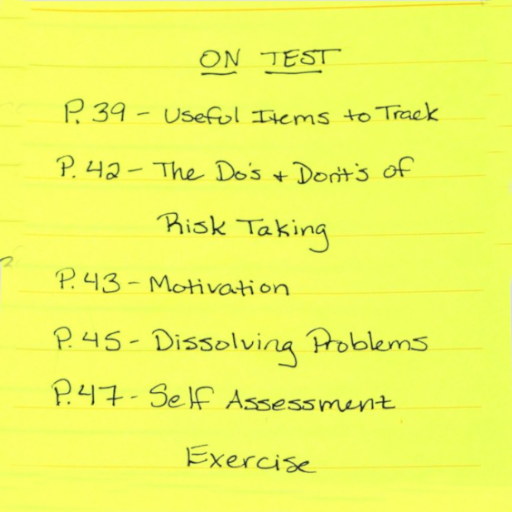 ON TEST
P. 39 - Useful Items to Track
P. 42 - The Do's + Dont's of
Risk Taking
P. 43 - Motivation
P. 45 - Dissolving Problems
P. 47 - Self Assessment
Exercise